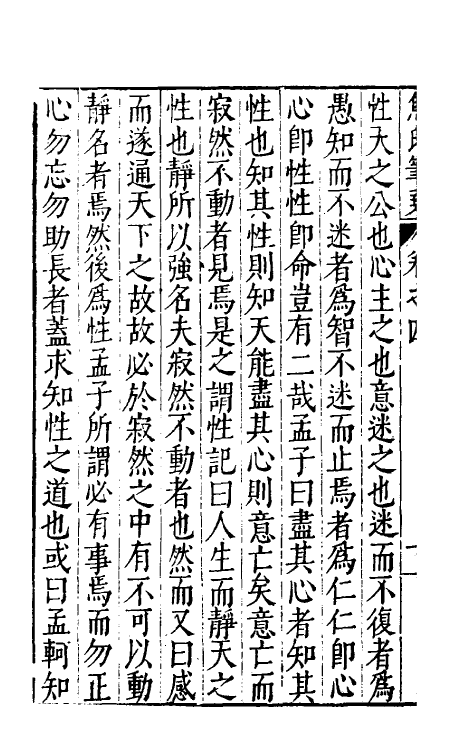 卷之四
性天之公也心主之也意迷之也迷而不復者為
愚知而不迷者為智不迷而止焉者為仁仁即心
心即性性即命豈有二哉孟子曰盡其心者知其
性也知其性則知天能盡其心則意亡矣意亡而
寂然不動者見焉是之謂性記曰人生而靜天之
性也靜所以強名夫寂然不動者也然而又曰感
而遂通天下之故故必於寂然之中有不可以動
靜名者焉然後為性孟子所謂必有事焉而勿正
心勿忘勿助長者蓋求知性之道也或曰孟軻知